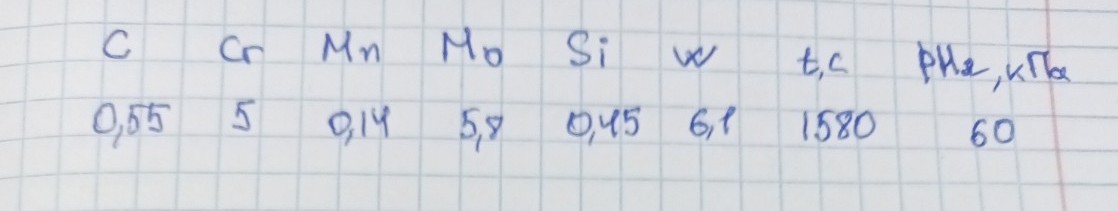 C Cr Mn Mo Si W t,c pH2, кПа
0,55 5 0,14 5,8 0,45 6,1 1580 60